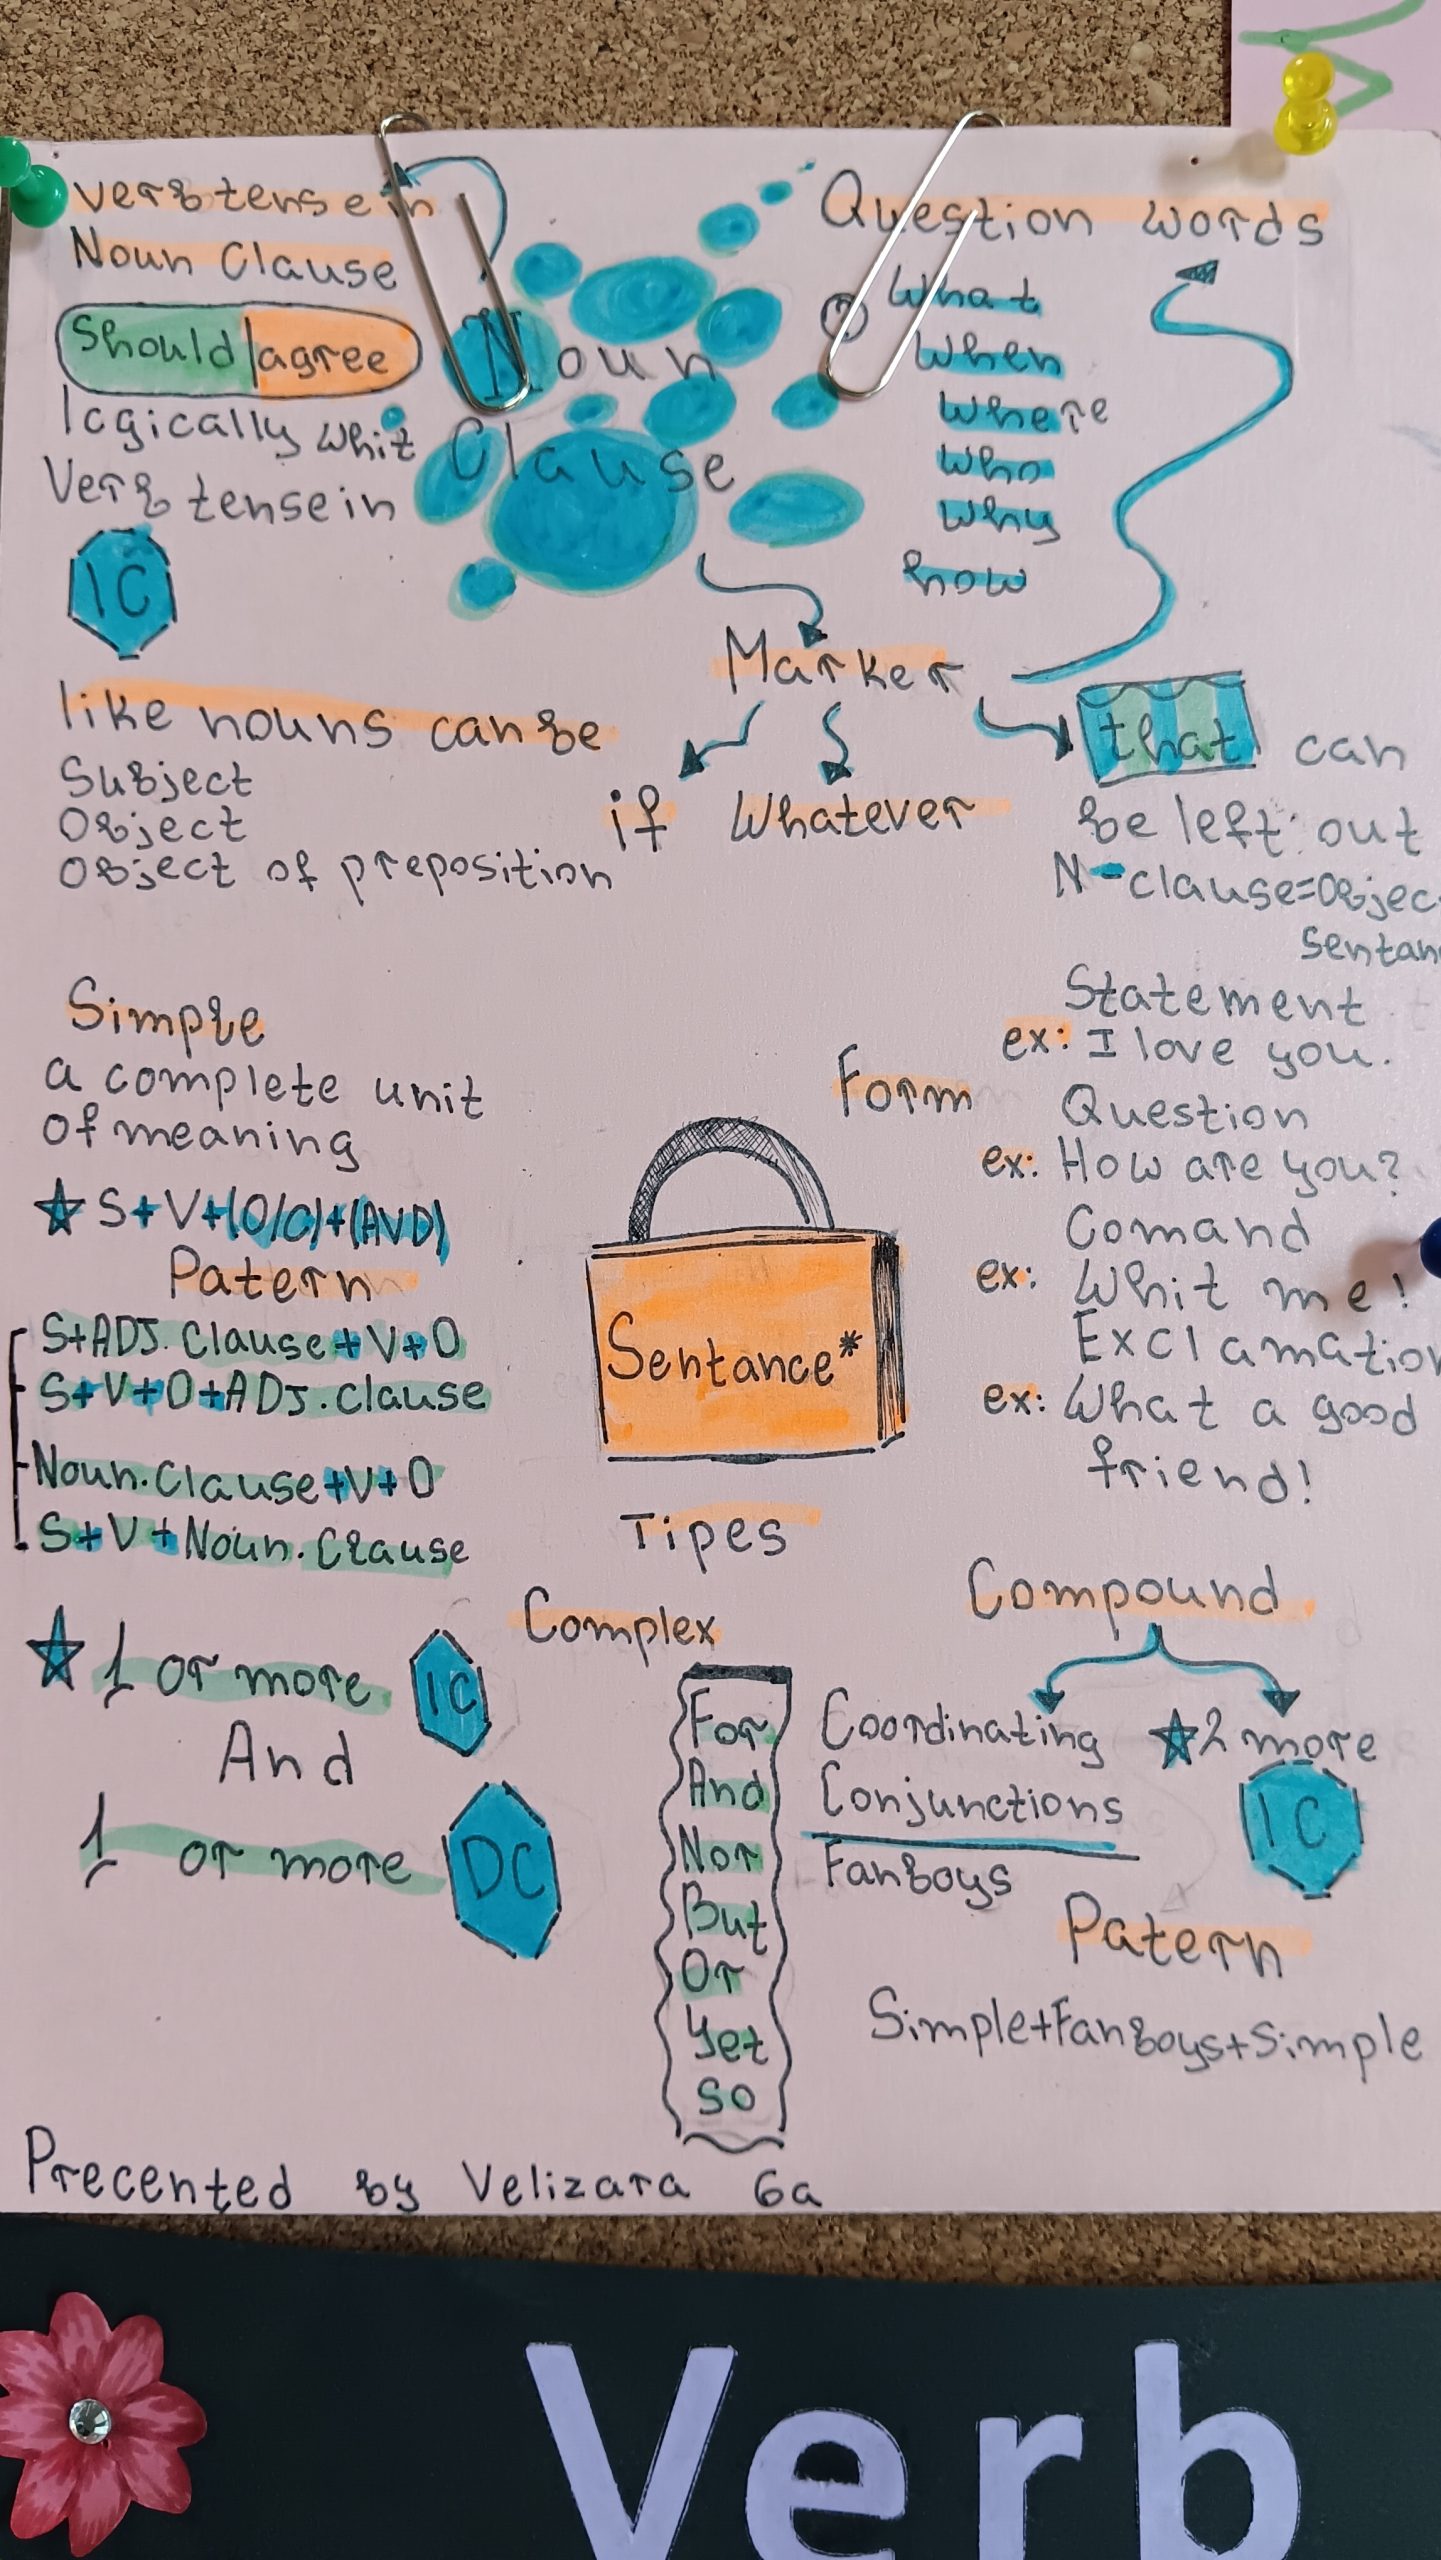 Verb tense in
Noun Clause
Should/agree
logically whit
Verb tense in
IC
Noun
Clause
Question words
What
When
Where
Who
Why
how
Marker
if
Whatever
that can
be left out
N-clause=Objec
Sentan
like nouns can be
Subject
Object
Object of preposition
Simple
a complete unit
of meaning
S+V+(O/C)+(AVD)
Patern
S+ADJ. Clause+V+O
S+V+O+ADJ. clause
Noun. Clause+V+O
S+V+Noun. Clause
Sentance*
Form
Statement
ex: I love you.
Question
ex: How are you?
Comand
ex: Whit me!
Exclamation
ex: What a good
friend!
Tipes
Complex
1 or more IC
And
1 or more DC
For
And
Nor
But
Or
Yet
So
Compound
Coordinating
Conjunctions
Fanboys
2 more
IC
Patern
Simple+Fanboys+Simple
Precented by Velizara 6a
Verb